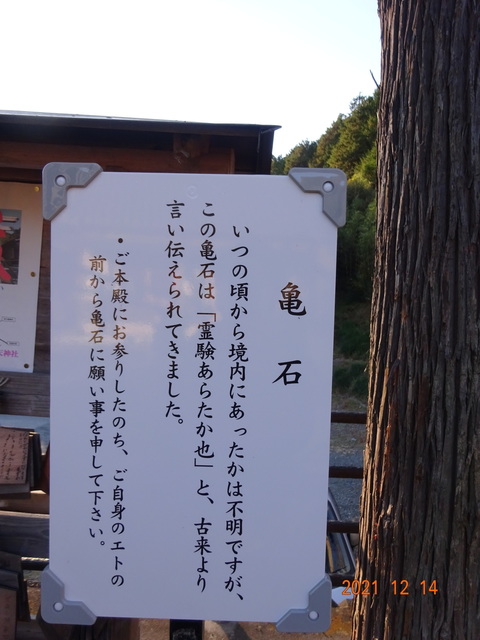 亀石
いつの頃から境内にあったかは不明ですが、
この亀石は「霊験あらたか也」と、古来より
言い伝えられてきました。
・ご本殿にお参りしたのち、ご自身のエトの
前から亀石に願い事を申して下さい。
2021 12 14